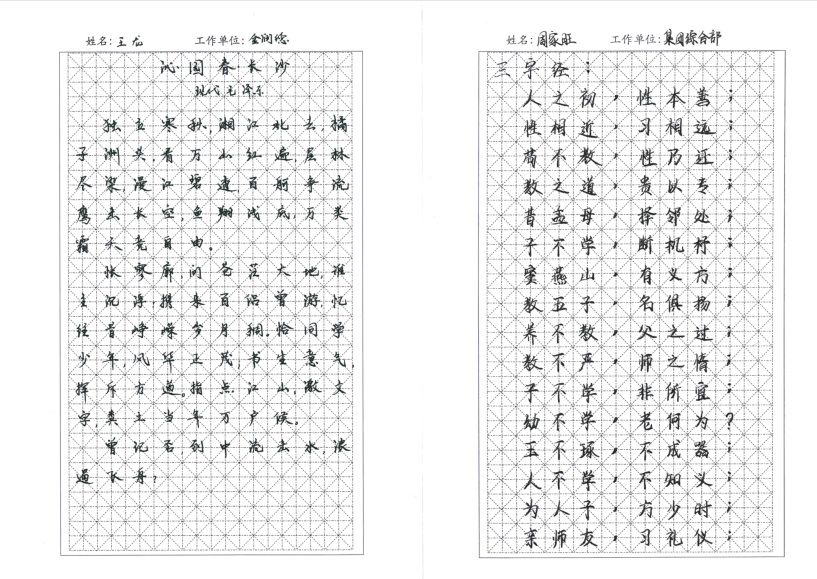 姓名：王龙 工作单位：金润德
沁园春·长沙
现代 毛泽东
独立寒秋，湘江北去，橘
子洲头，看万山红遍，层林
尽染，漫江碧透，百舸争流
鹰击长空，鱼翔浅底，万类
霜天竞自由。
怅寥廓问苍茫大地，谁
主沉浮携来百侣曾游，忆
往昔峥嵘岁月稠。恰同学
少年，风华正茂；书生意气，
挥斥方遒。指点江山，激文
字，粪土当年万户侯。
曾记否到中流击水，浪
遏飞舟？
姓名：周家旺 工作单位：集团综合部
三字经：
人之初，性本善；
性相近，习相远；
苟不教，性乃迁；
教之道，贵以专；
昔孟母，择邻处；
子不学，断机杼；
窦燕山，有义方；
教五子，名俱扬；
养不教，父之过；
教不严，师之惰；
子不学，非所宜；
幼不学，老何为？
玉不琢，不成器；
人不学，不知义；
为人子，方少时；
亲师友，习礼仪；